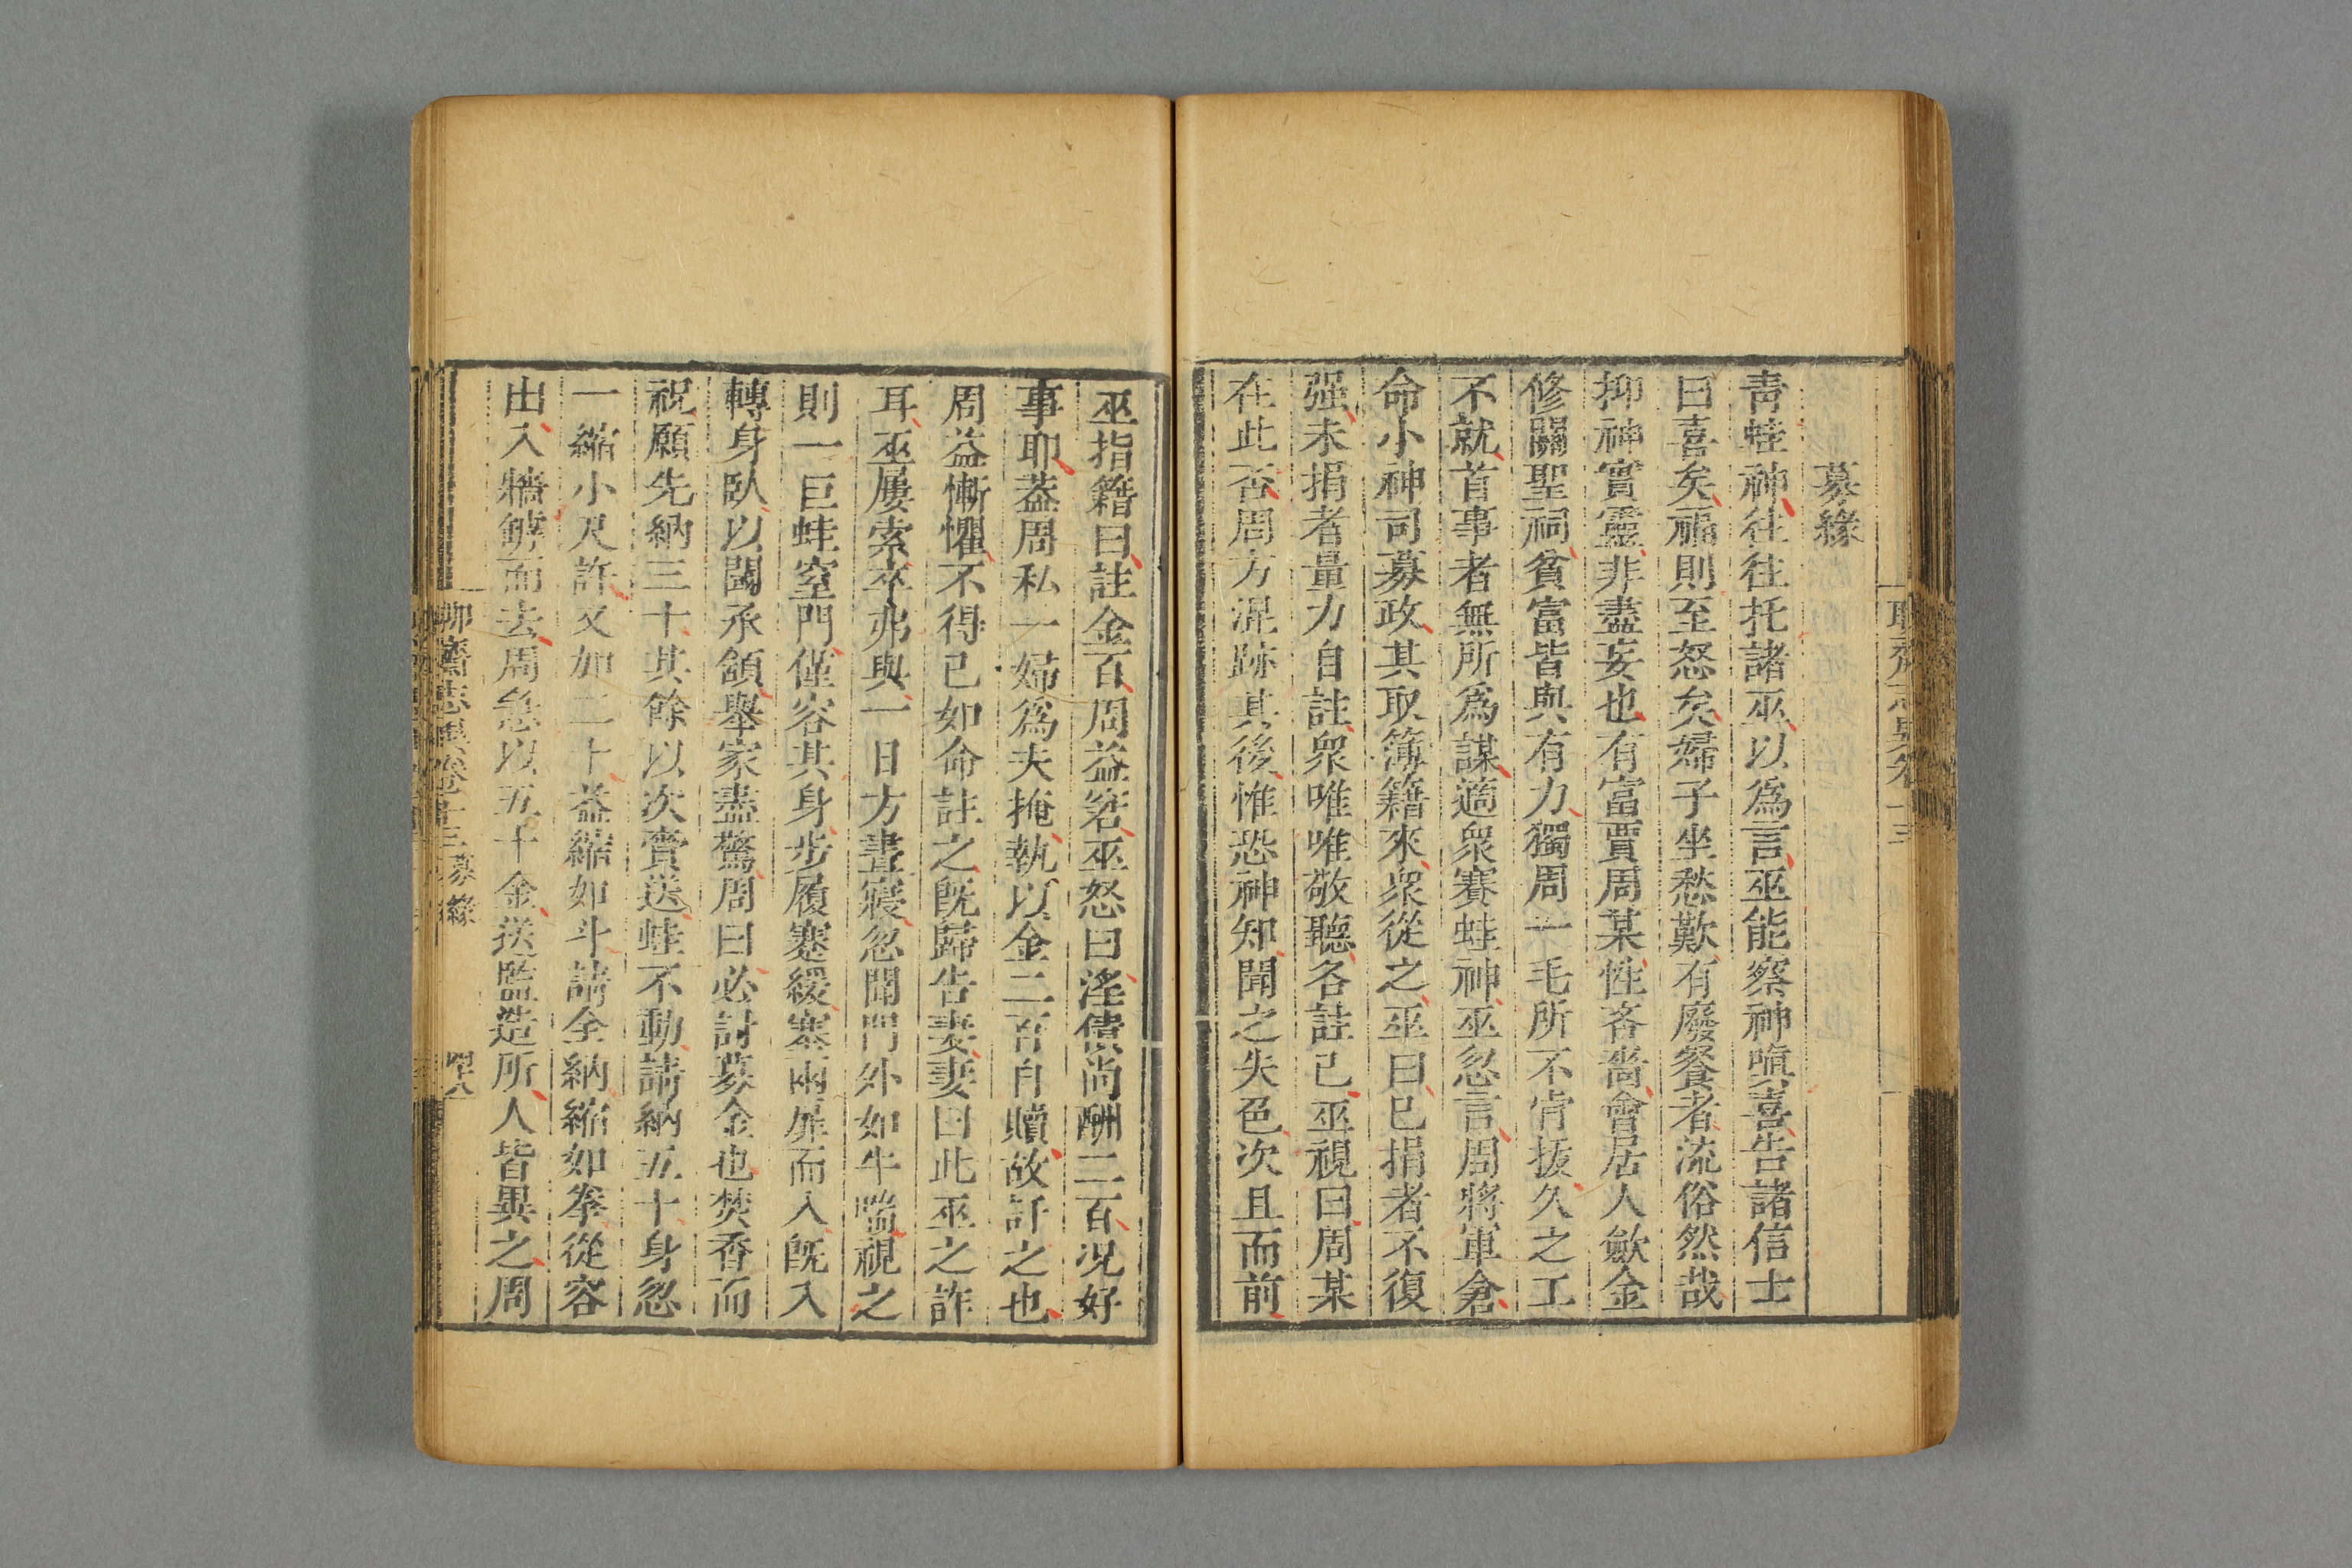 募緣
青蛙神往往托諸巫以爲言巫能察神嗔喜告諸信士
曰喜矣福則至怒矣婦子坐愁歎有廢餐者流俗然哉
抑神實靈非盡妄也有富賈周某性吝嗇會居人斂金
修關聖祠貧富皆與有力獨周一毛所不肯拔久之工
不就首事者無所爲謀適衆賽蛙神巫忽言周將軍倉
命小神司募政其取簿籍來衆從之巫曰已捐者不復
强未捐者量力自註衆唯唯敬聽各註已巫視曰周某
在此否周方混跡其後惟恐神知聞之失色次且而前
巫指籍曰註金百周益窘巫怒曰淫債尚酬二百况好
事耶蓋周私一婦爲夫掩執以金二百自贖故訐之也
周益慚懼不得已如命註之既歸告妻妻曰此巫之詐
耳巫屢索卒弗與一日方晝寢忽聞門外如牛喘視之
則一巨蛙室門僅容其身步履蹇緩塞兩扉而入既入
轉身臥以閾承頷舉家盡驚周曰必討募金也焚香而
祝願先納三十其餘以次賫送蛙不動請納五十身忽
一縮小尺許又加二十益縮如斗請全納縮如拳從容
出入牆罅而去周急以五十金送監造所人皆異之周
聊齋志異卷十三 募緣 四十八